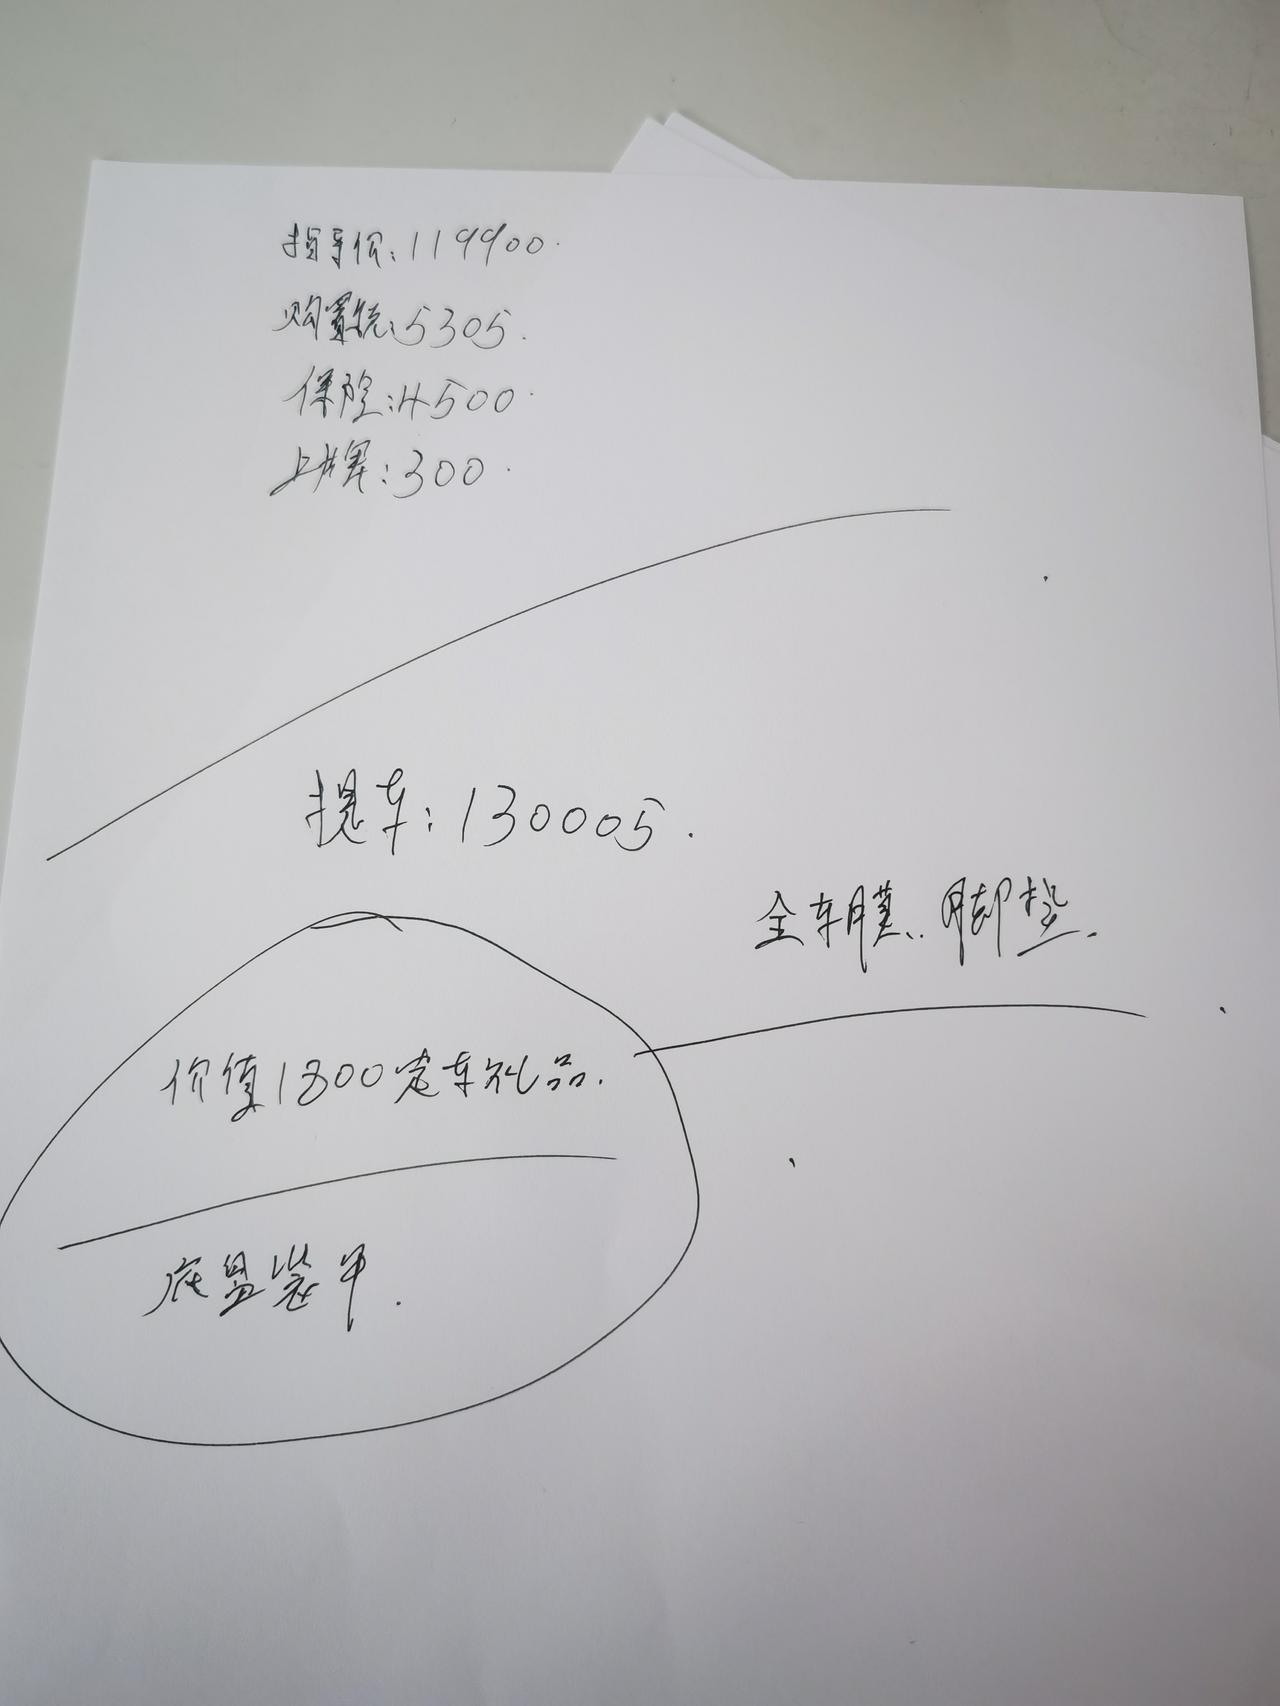 指导价:119900.
购置税:5305.
保险:4500.
上牌:300.
提车:130005.
全车膜、脚垫.
价值1800定车礼品.
底盘装甲.